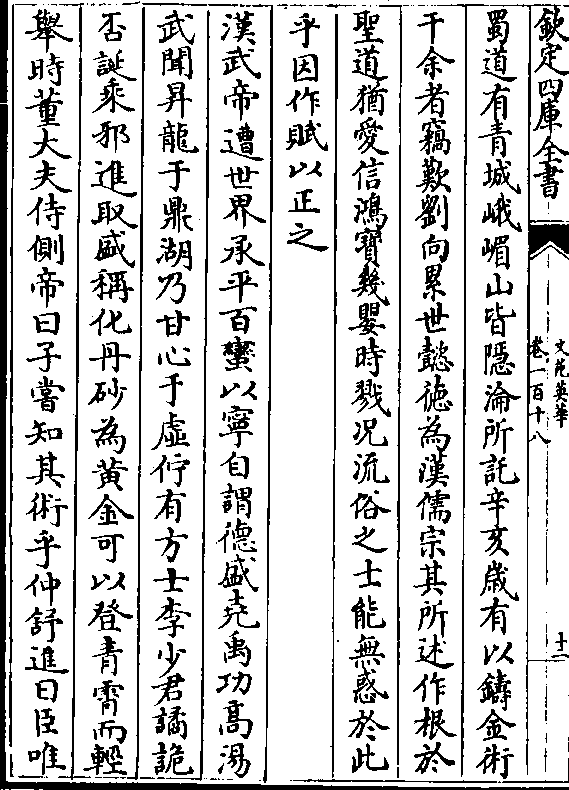 欽定四庫全書
文苑英華
卷一百十八
十二
蜀道有青城峨嵋山皆隠淪所託辛亥歲有以鑄金術
干余者竊歎劉向累世懿徳為漢儒宗其所述作根於
聖道猶愛信鴻寶幾嬰時戮况流俗之士能無惑於此
乎因作賦以正之
漢武帝遭世界承平百蠻以寧自謂德盛堯禹功髙湯
武聞昇龍于鼎湖乃甘心于虛佇有方士李少君譎詭
否誕乘邪進取盛稱化丹砂為黄金可以登青霄而輕
舉時董大夫侍側帝曰子嘗知其術乎仲舒進曰臣唯